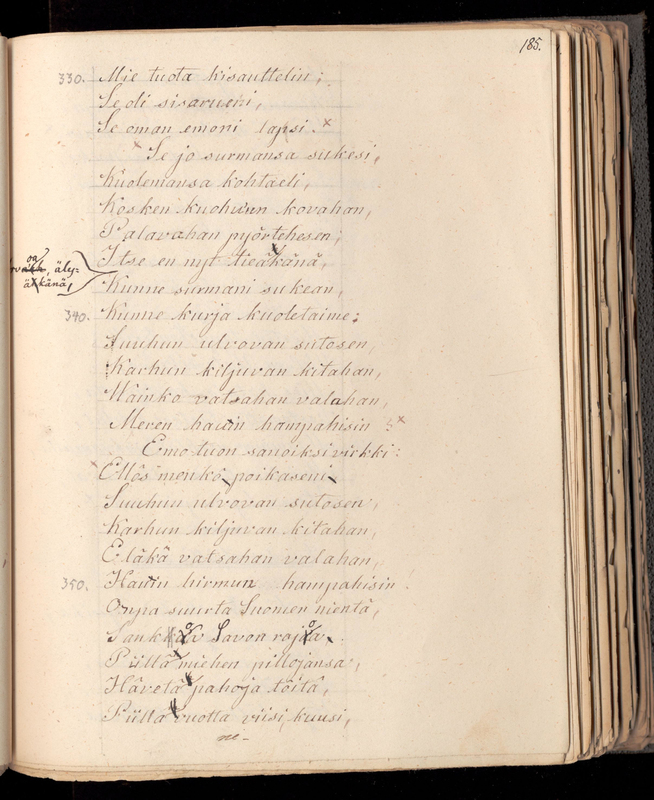 185.
330. Mie tuota kisauttelin;
Se oli sisarueni,
Se oman emoni lapsi.
Se jo surmansa sukesi,
Kuolemansa kohtaeli,
Kosken kuohuun kovahan,
Palavahan pyörtehesen;
Itse en nyt tieäkänä,
äly-
äkänä,
Kunne surmani sukean,
340. Kunne kurja kuoletaime:
Suuhun ulvovan sutosen,
Karhun kiljuvan kitahan,
Vainko vatsahan valahan,
Meren hauin hampahisin?
Emo tuon sanoiksi virkki:
Ellös menkö poikaseni
Suuhun ulvovan sutosen,
Karhun kiljuvan kitahan,
Eläkä vatsahan valahan,
350. Hauin hirmun hampahisin!
Onpa suurta Suomen nientä,
Savon rajoa
Piillä miehen pillojansa,
Hävetä pahoja töitä,
Piillä vuotta viisi, kuusi,
ne-